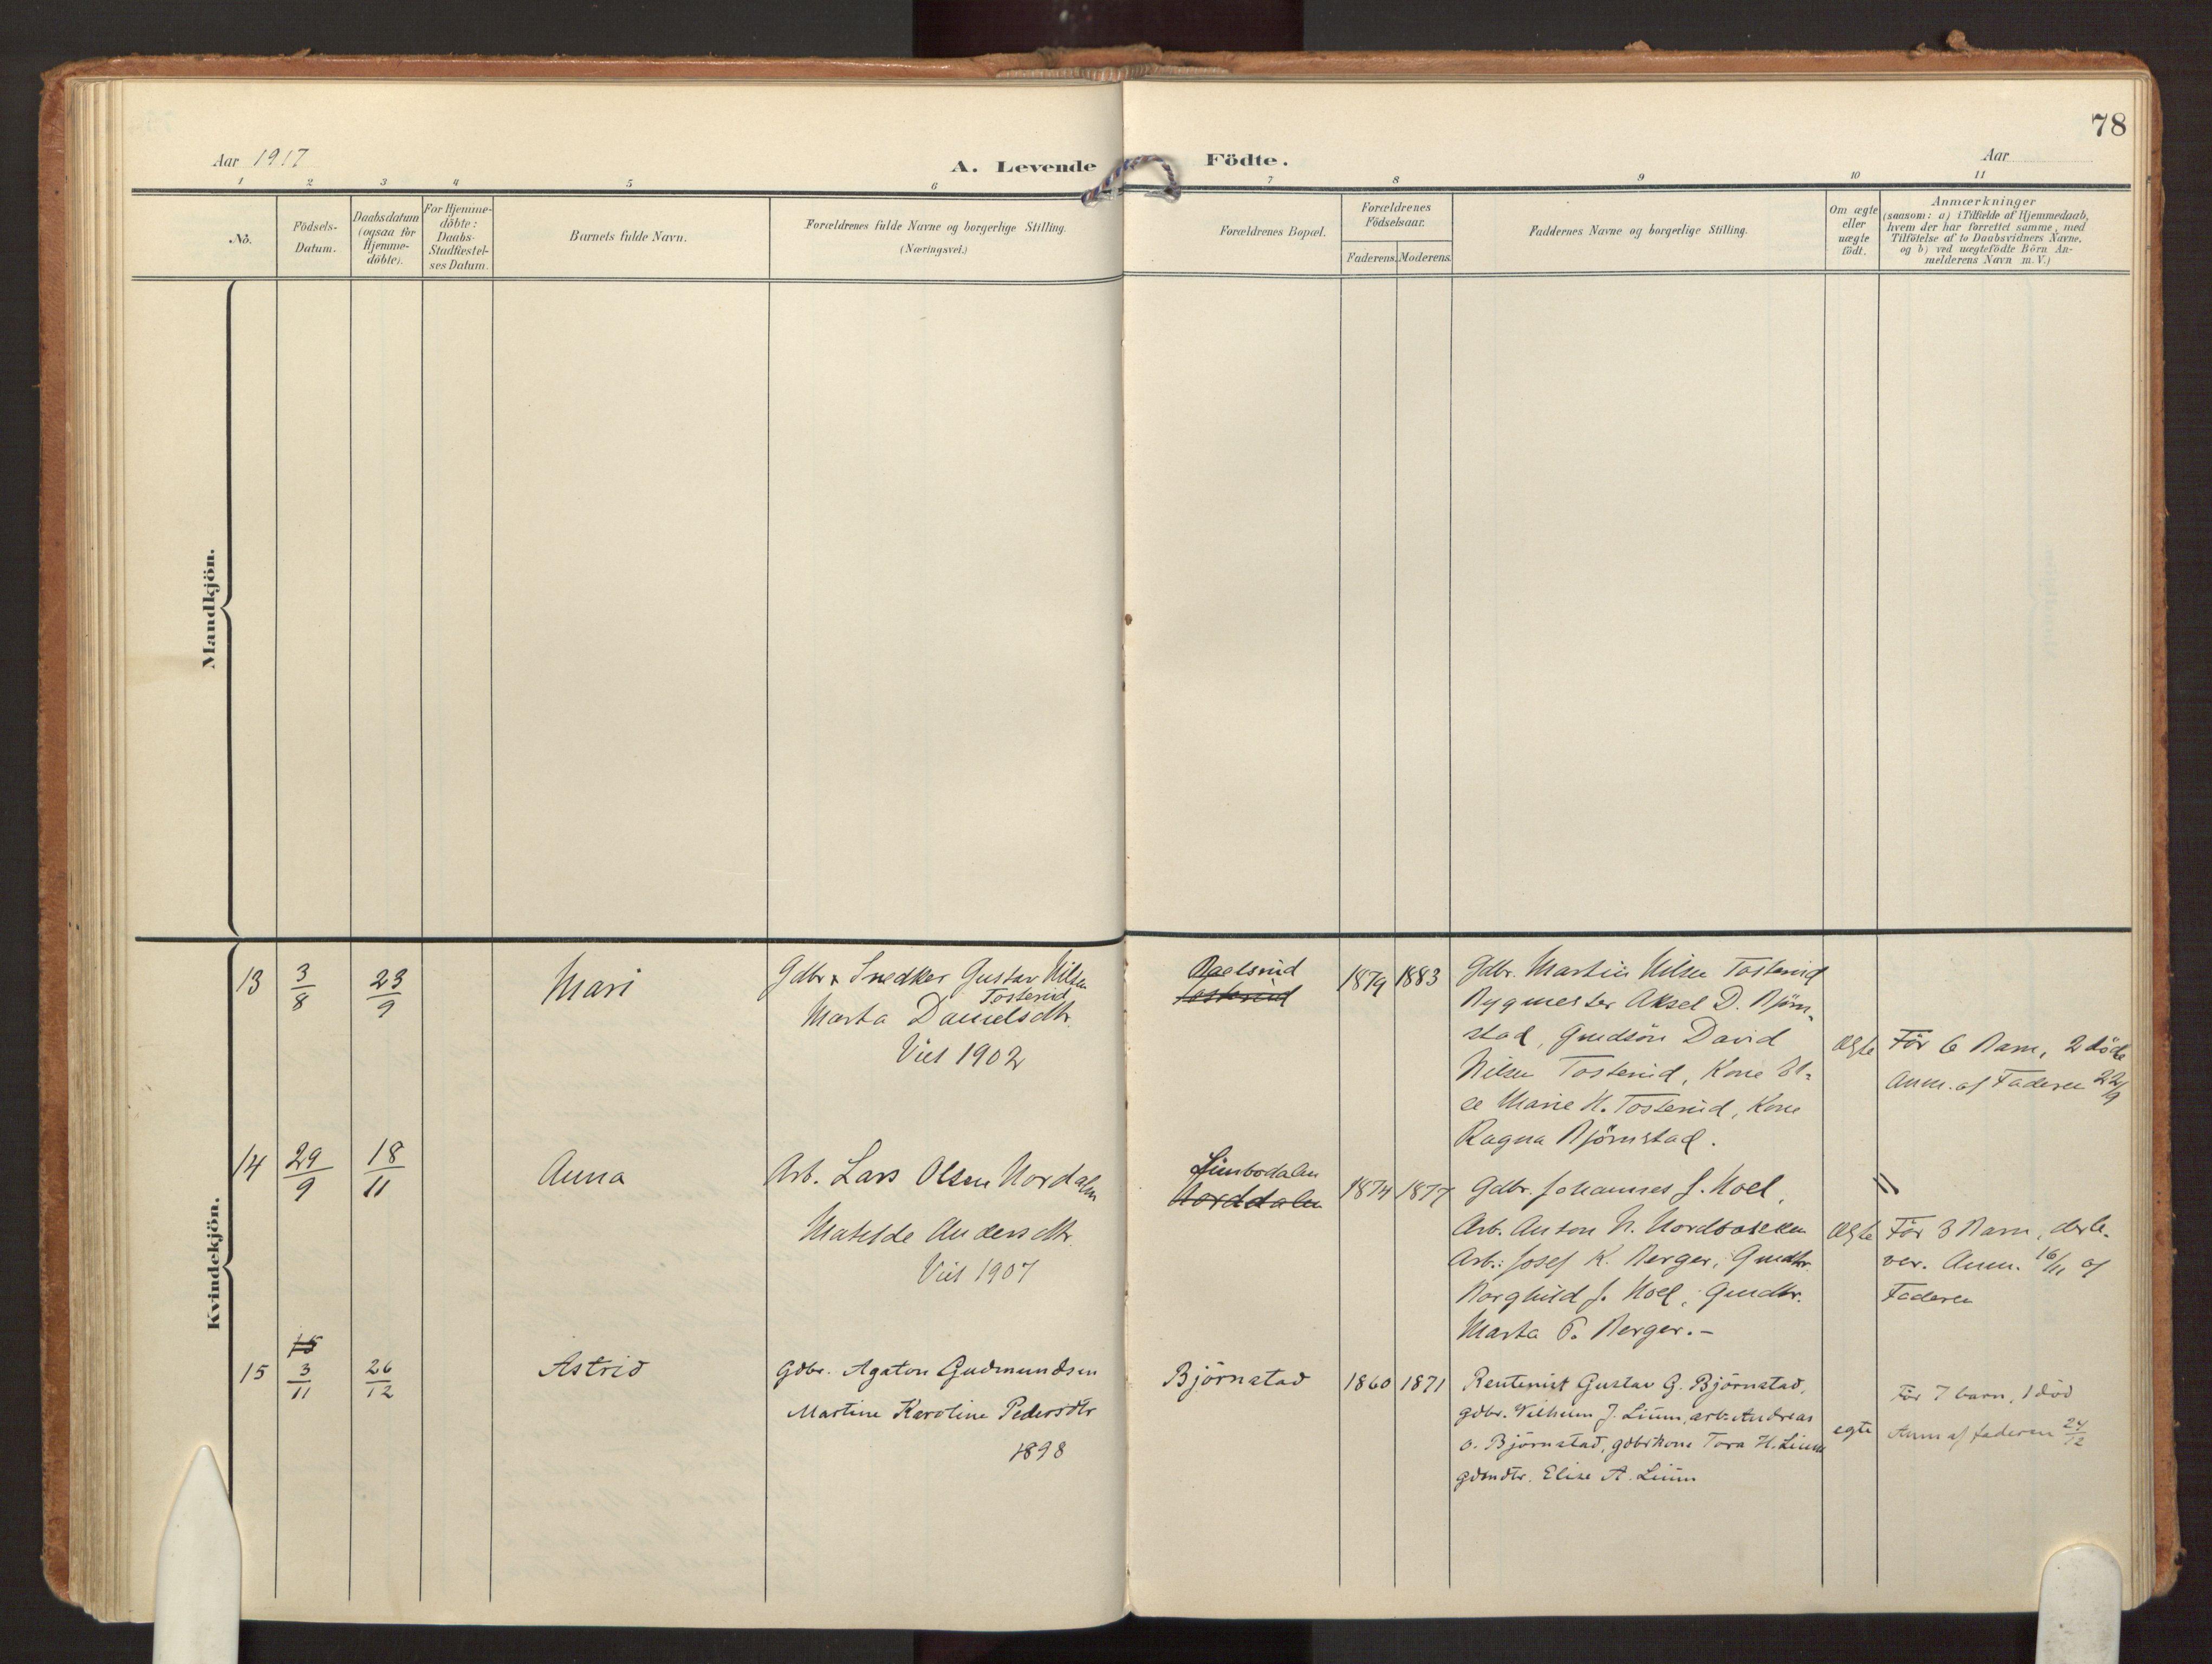 78
Aar 1917
A. Levende
Födte.
Aar
1 2 3 4 5 6 7 8 9 10 11
No.
Födsels-
Datum.
Daabsdatum
(ogsaa for
Hjemme-
döbte).
For Hjemme-
döbte:
Daabs-
Stadfæstel-
ses Datum.
Barnets fulde Navn.
Forældrenes fulde Navne og borgerlige Stilling.
(Næringsvei.)
Forældrenes Bopæl.
Forældrenes
Födselsaar.
Faderens. Moderens.
Faddernes Navne og borgerlige Stilling.
Om ægte
eller
uægte
födt.
Anmærkninger
(saasom: a) i Tilfælde af Hjemmedaab,
hvem der har forrettet samme, med
Tilföielse af to Daabsvidners Navne.
og b) ved uægtefödte Börn An-
melderens Navn m. V.)
Mandkjön.
Kvindekjön.
13
3/8
23/9
Mari
Gdbr & Snedker Gustav Nilsen
Tosterud
Marta Danielsdtr.
Viet 1902
Tosterud
1879 1883
Gdbr. Martin Nilsen Tosterud
Bygmester Aksel D. Björn-
stad, Gmdsön David
Nilsen Tosterud, Kone El-
se Marie N. Tosterud, Kone
Ragna Björnstad.
Ægte
För 6 Barn, 2 döde
Anm. af Faderen 22/9
14
29/9
18/11
Anna
Arb. Lars Olsen Nordalen
Matilde Andersdtr.
Viet 1907
Limbodalen
Norddalen
1874 1877
Gdbr. Johannes J. Hoel,
Arb. Anton N. Nordbakken
Arb.: Josef K. Berger, Gmdtr.
Borghild J. Hoel, Gmdtr.
Marta P. Berger.-
Ægte
"
För 3 Barn, der le-
ver. Anm. 16/11 af
Faderen
15
15
3/11
26/12
Astrid
Gdbr. Agaton Gudmundsen
Martine Karoline Pedersdtr
1898
Björnstad
1860 1871
Rentenist Gustav G. Björnstad,
gdbr. Vilhelm J. Liùm, arb. Andreas
O. Björnstad, gdbrkone Tora H. Liùm
gdmdtr. Elise A. Liùm
egte
För 7 barn, 1 död
Anm af faderen 24/12